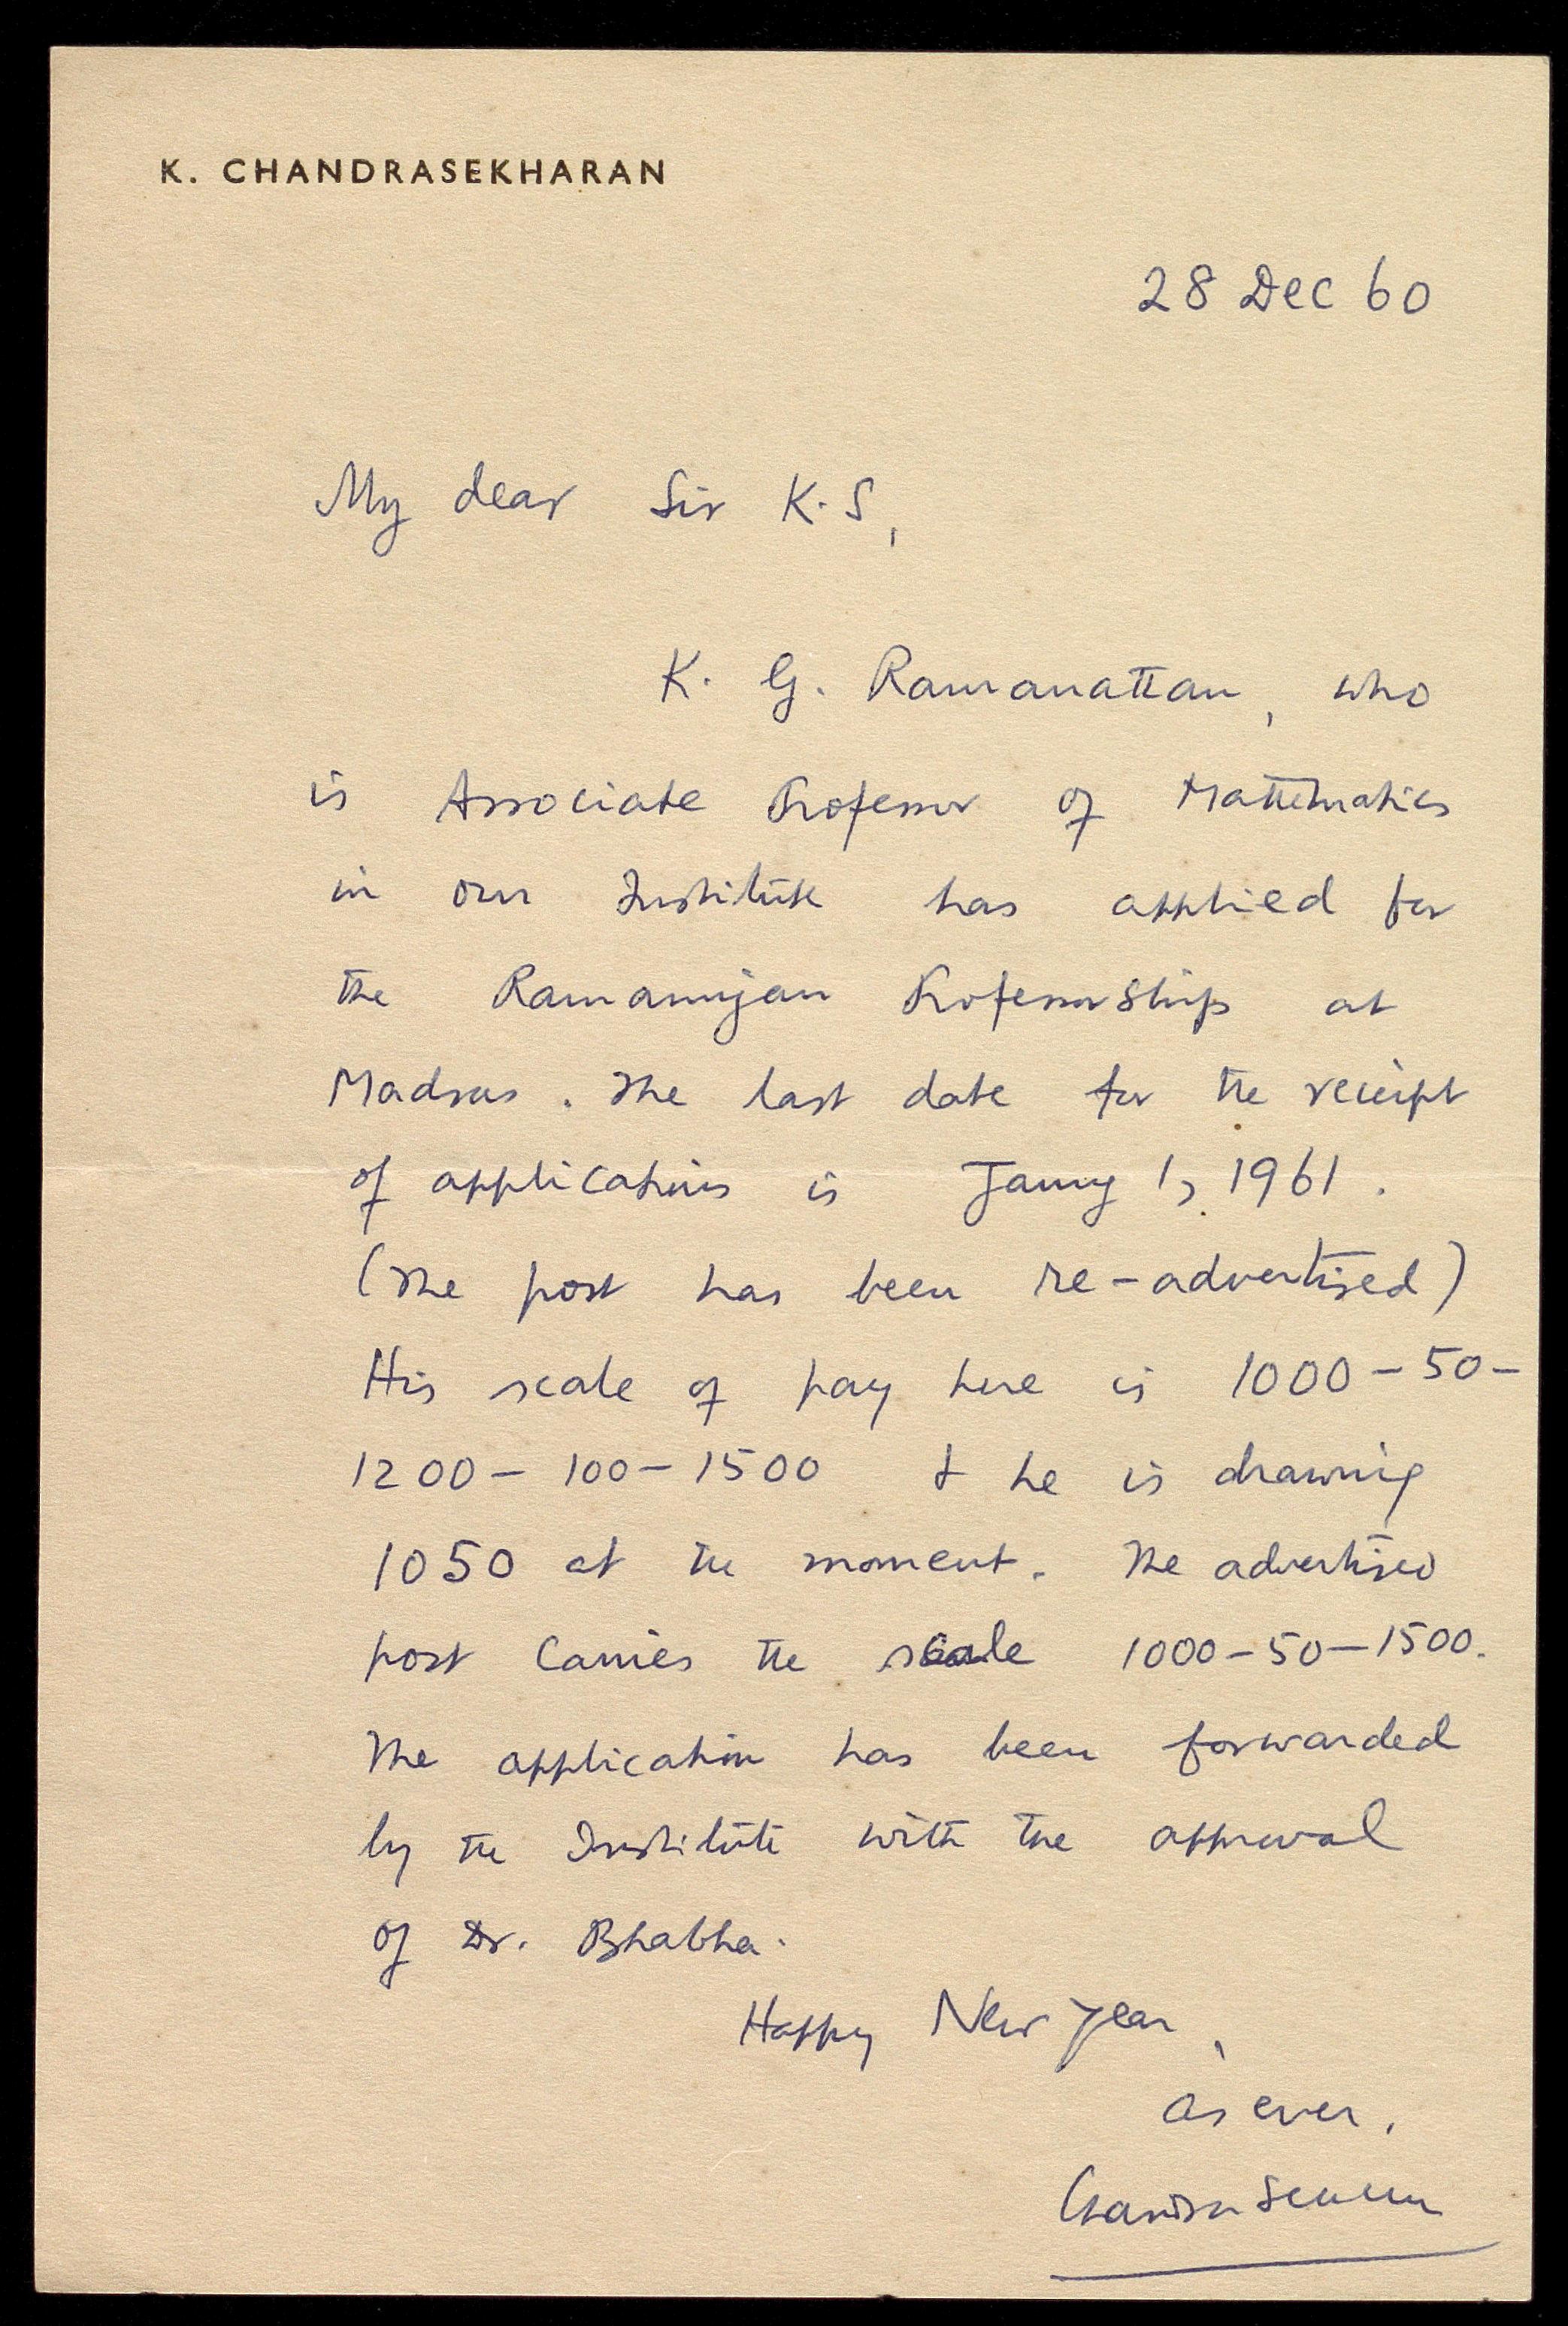 K. CHANDRASEKHARAN
28 Dec 60
My dear Sir K.S,
K. G. Ramanathan, who
is Associate Professor of Mathematics
in our Institute has applied for
the Ramanujan Professorship at
Madras. The last date for the receipt
of applications is January 1, 1961.
(The post has been re-advertised)
His scale of pay here is 1000-50-
1200-100-1500 & he is drawing
1050 at the moment. The advertised
post carries the scale 1000-50-1500.
The application has been forwarded
by the Institute with the approval
of Dr. Bhabha.
Happy New Year,
As ever,
Chandrasekharan